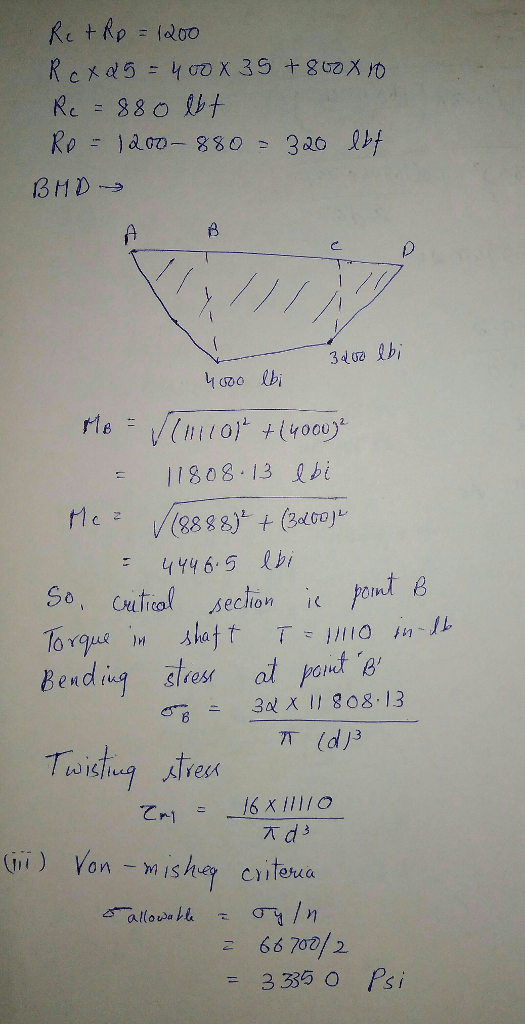 Rc + RD = 1200
Rc x 25 = 400 x 35 + 800 x 10
Rc = 880 lbf
RD = 1200 - 880 = 320 lbf
BMD →
A B C D
3200 lbi
4000 lbi
MB = √(11110)² + (4000)²
= 11808.13 lbi
Mc = √(8888)² + (3200)²
= 4446.5 lbi
So, critical section is point B
Torque in shaft T = 11110 in-lb
Bending stress at point 'B'
σB = 32 x 11808.13 / π (d)³
Twisting stress
τM = 16 x 11110 / π d³
(iii) Von-misheg criteria
σ allowable = σy/n
= 66700/2
= 33350 Psi